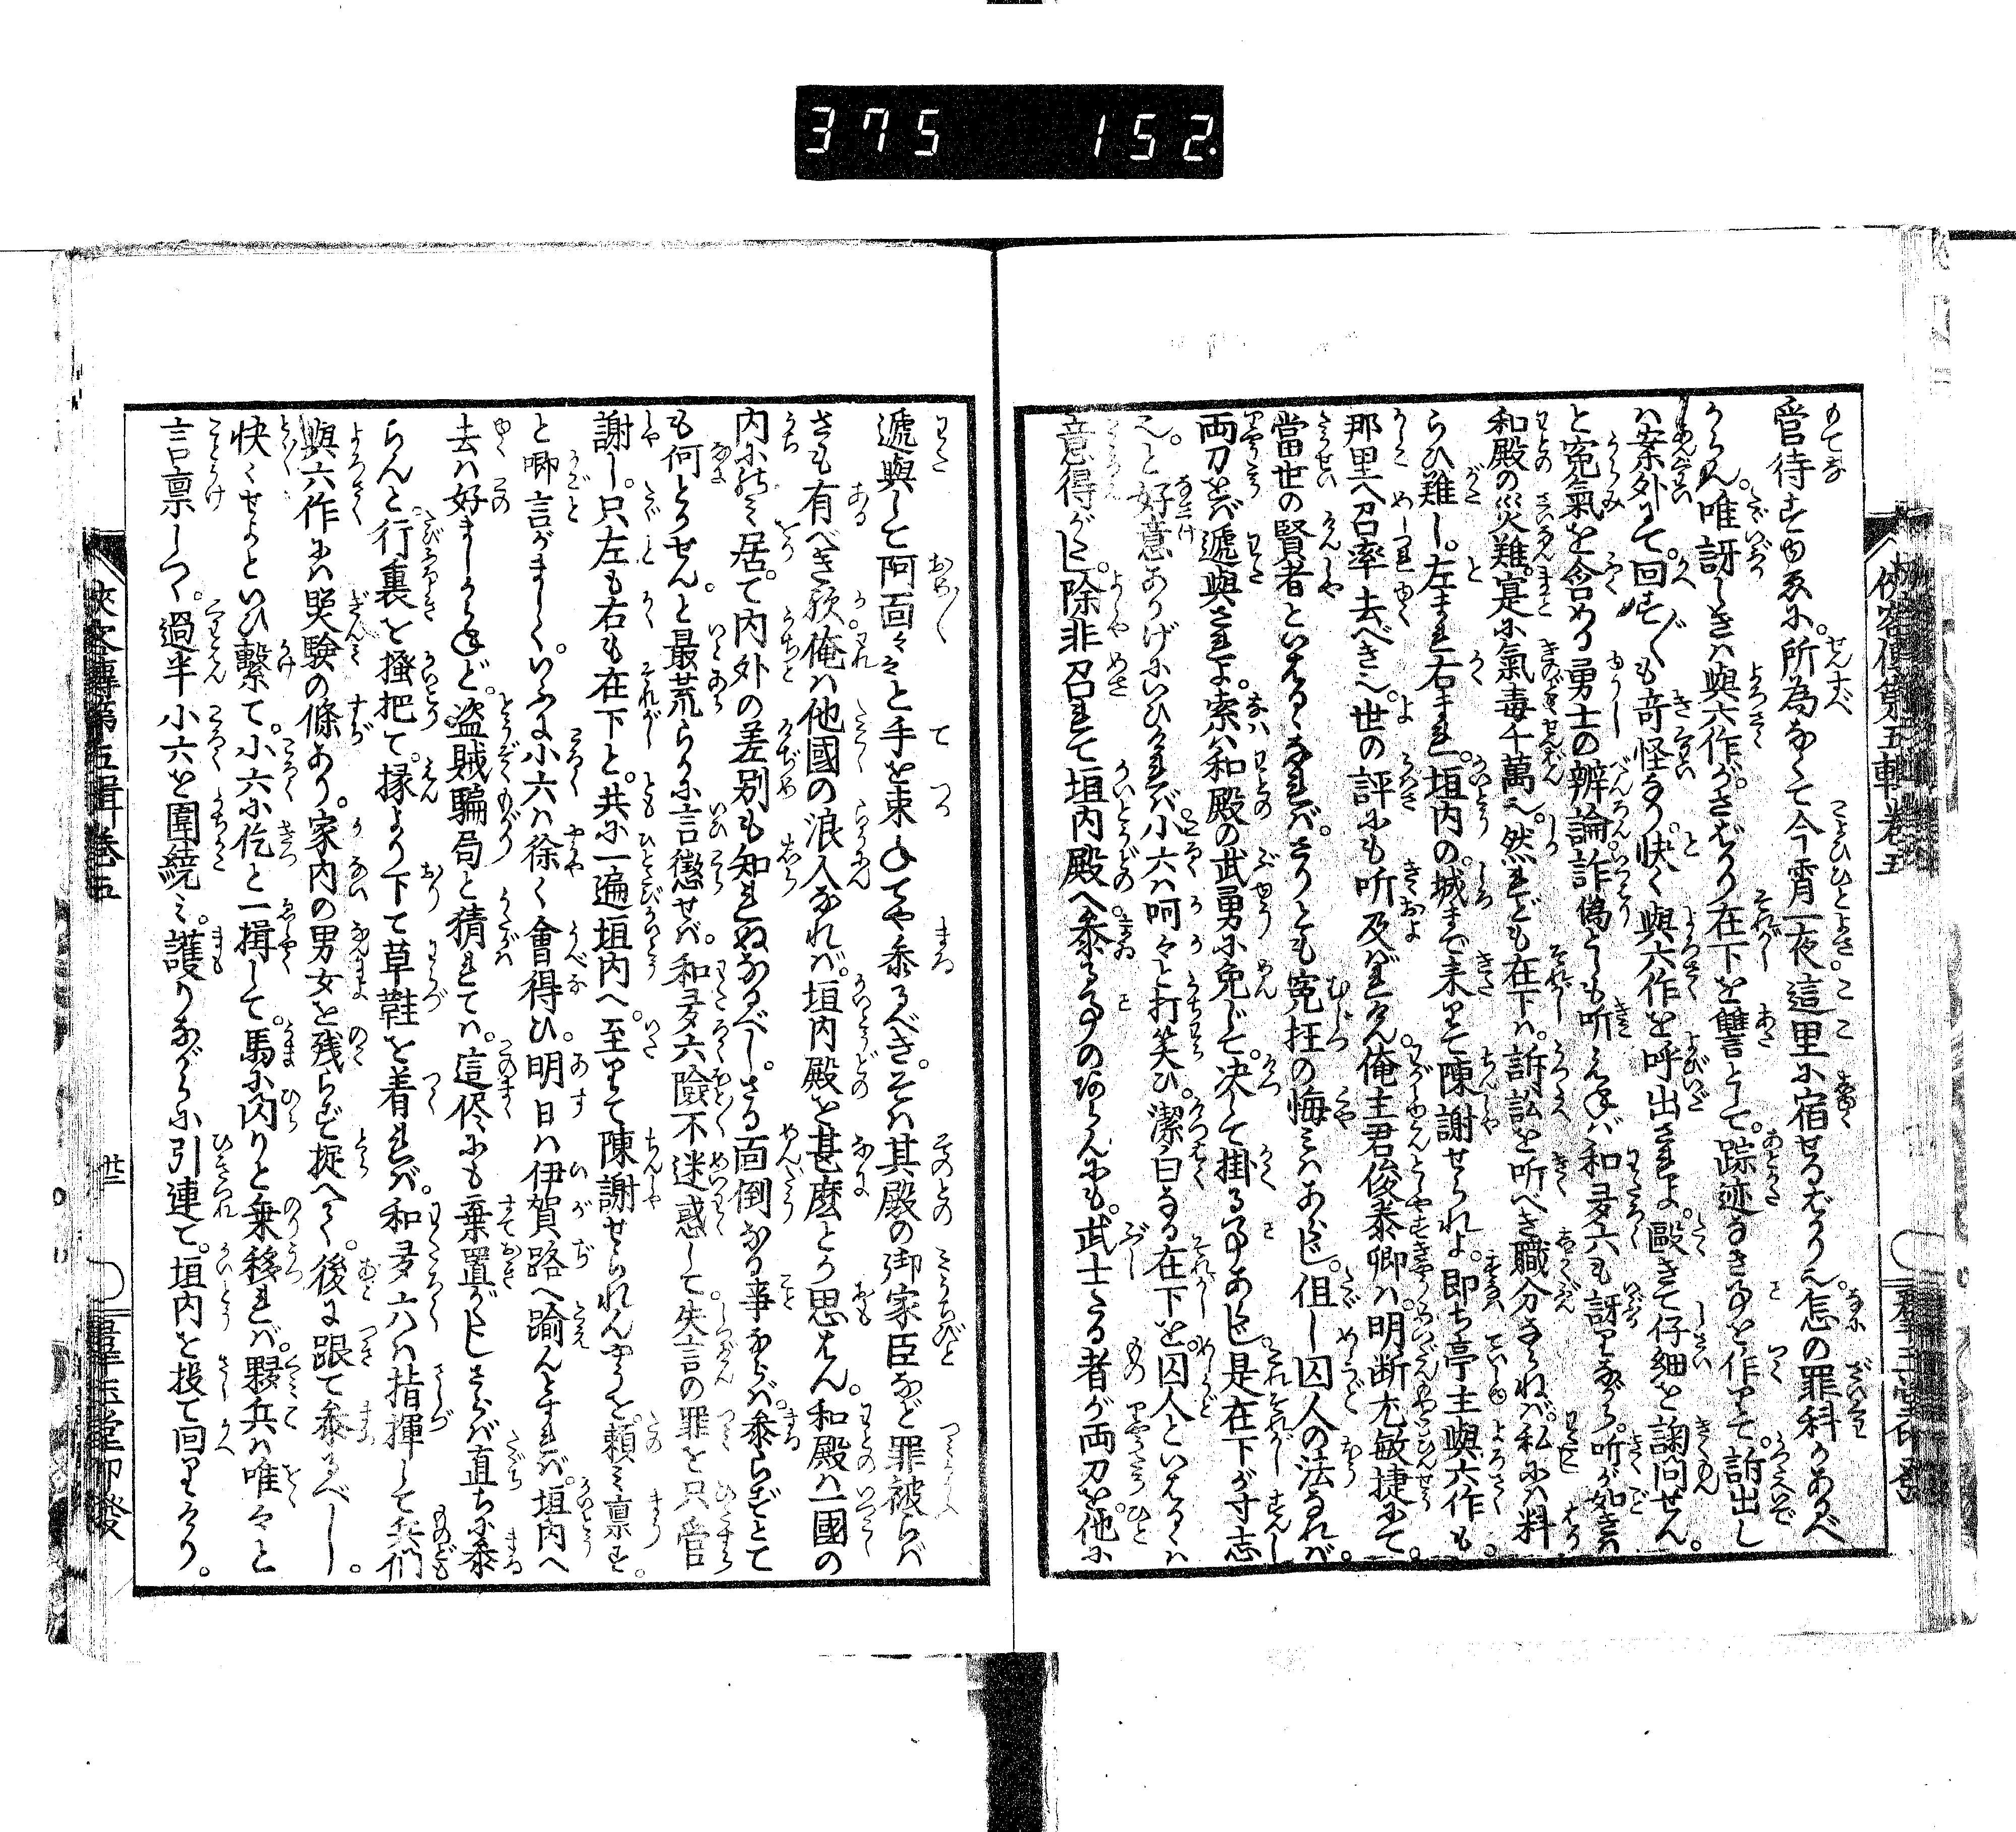 375 152.
俠客傳第五輯卷五
管待すゆゑに。所為なくて今宵一夜這里に宿せるばかり也。怎の罪科かあるべ
からん。唯訝しきは與六作が。さばかり在下を讐として。踪迹なき事を作りて。訴出し
は案外にて。回す〲も奇怪なり。快く與六作を呼出されよ。毆きて仔細を鞠問せん。
と寃氣を含める勇士の辨論詐偽とも听えねば和多六も訝りながら。听が如きは
和殿の災難。寔に氣毒千萬也。然れども在下は。訴訟を听べき職分ならねば。私には料
らひ難し。左まれ右まれ。垣内の。城まで来りて陳謝せられよ。即ち亭主與六作も。
那里へ召率去べき也。世の評にも听及ばれけん。俺主君俊泰卿は。明断尤敏捷にて。
當世の賢者といはるゝなれば。さりとも寃枉の悔みはあらじ。但し囚人の法なれば。
両刀をば遞與されよ。索は和殿の武勇に免じて。决して掛る事あらじ。是在下が寸志
也。と好意ありげにいひければ。小六は呵々と打笑ひ。潔白なる在下を。囚人といはるゝは
意得がたし。除非召れて垣内殿へ。參る事のあらんにも。武士たる者が両刀を。他に
遞與して阿面々々と手を束ねてや參るべき。そは其殿の御家臣など罪被らば
さも有べき歟。俺は他國の浪人なれば。垣内殿を甚麽とか思はん。和殿は一國の
内にのみ居て。内外の差别も知れぬなるべし。さる面倒なる事ならば。參らずとて
も何とかせん。と最荒らかに言懲せば。和多六險不迷惑して。失言の罪を只管
謝し。只左も右も在下と。共に一遍垣内へ。至りて陳謝せられんやうを。頼み禀す。
と唧言がましく。いふに小六は徐く會得ひ。明日は伊賀路へ踰んとすれば。垣内へ
去は好ましからねど。盗賊騙局と猜れては。這侭にも棄置がたしさらば直ちに參
らんと。行裏を搔把て。縁より下て草鞋を着れば。和多六は指揮して兵們
與六作には㒒験の條あり。家内の男女を残らず捉へて。後に跟て參るべし。
快くせよといひ繋て。小六に仡と一揖して。馬に閃りと乗移れば。夥兵は唯々と
言禀しつゝ。過半小六を圍繞み。護りながらに引連て。垣内を投て回りけり。
俠客傳第五輯卷五
廿二